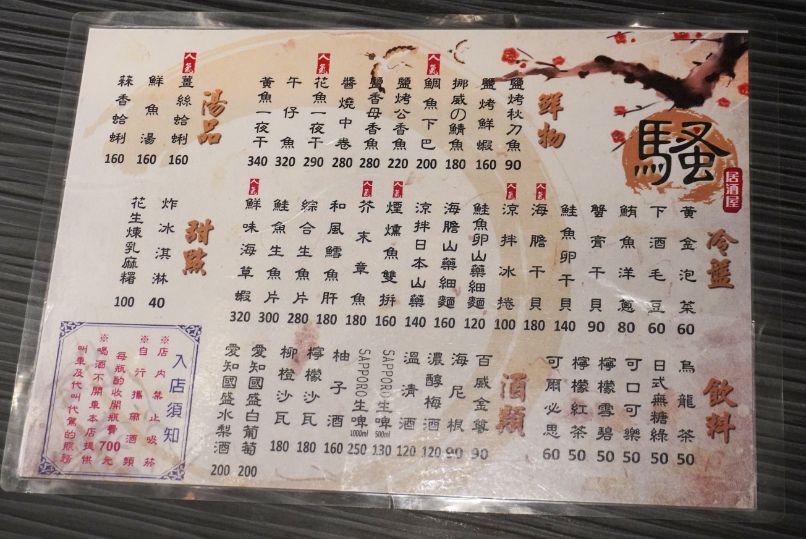 騷
居酒屋
鮮物
鹽烤秋刀魚 90
鹽烤鮮蝦 160
挪威の鯖魚 180
人氣 鯛魚下巴 200
鹽烤公香魚 220
鹽香母香魚 280
醬燒中卷 280
人氣 花魚一夜干 290
午仔魚 320
黃魚一夜干 340
湯品
人氣 薑絲蛤蜊 160
鮮魚湯 160
蒜香蛤蜊 160
冷盤
黃金泡菜 60
下酒毛豆 60
鮪魚洋蔥 80
蟹膏干貝 90
鮭魚卵干貝 140
人氣 海膽干貝 180
人氣 涼拌冰捲 100
鮭魚卵山藥細麵 120
海膽山藥細麵 160
涼拌日本山藥 140
人氣 煙燻魚雙拼 160
人氣 芥末章魚 180
和風鱈魚肝 180
綜合生魚片 280
鮭魚生魚片 300
人氣 鮮味海草蝦 320
甜點
炸冰淇淋 40
花生煉乳麻糬 100
飲料
烏龍茶 50
日式無糖綠 50
可口可樂 50
檸檬雪碧 50
檸檬紅茶 50
可爾必思 60
酒類
百威金尊 90
海尼根 90
濃醇梅酒 120
溫清酒 120
SAPPORO生啤 500ml 130
SAPPORO生啤 1000ml 250
柚子酒 160
檸檬沙瓦 180
柳橙沙瓦 180
愛知國盛白葡萄 200
愛知國盛水梨酒 200
入店須知
※店內禁止吸菸
※自行攜帶酒類
每瓶酌收開瓶費700元
※喝酒不開車本店提供
叫車及代叫代駕的服務